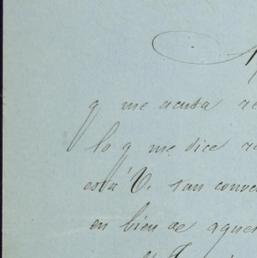 q me acusa re
lo q me dice re
está V. tan conve
en bien de aque